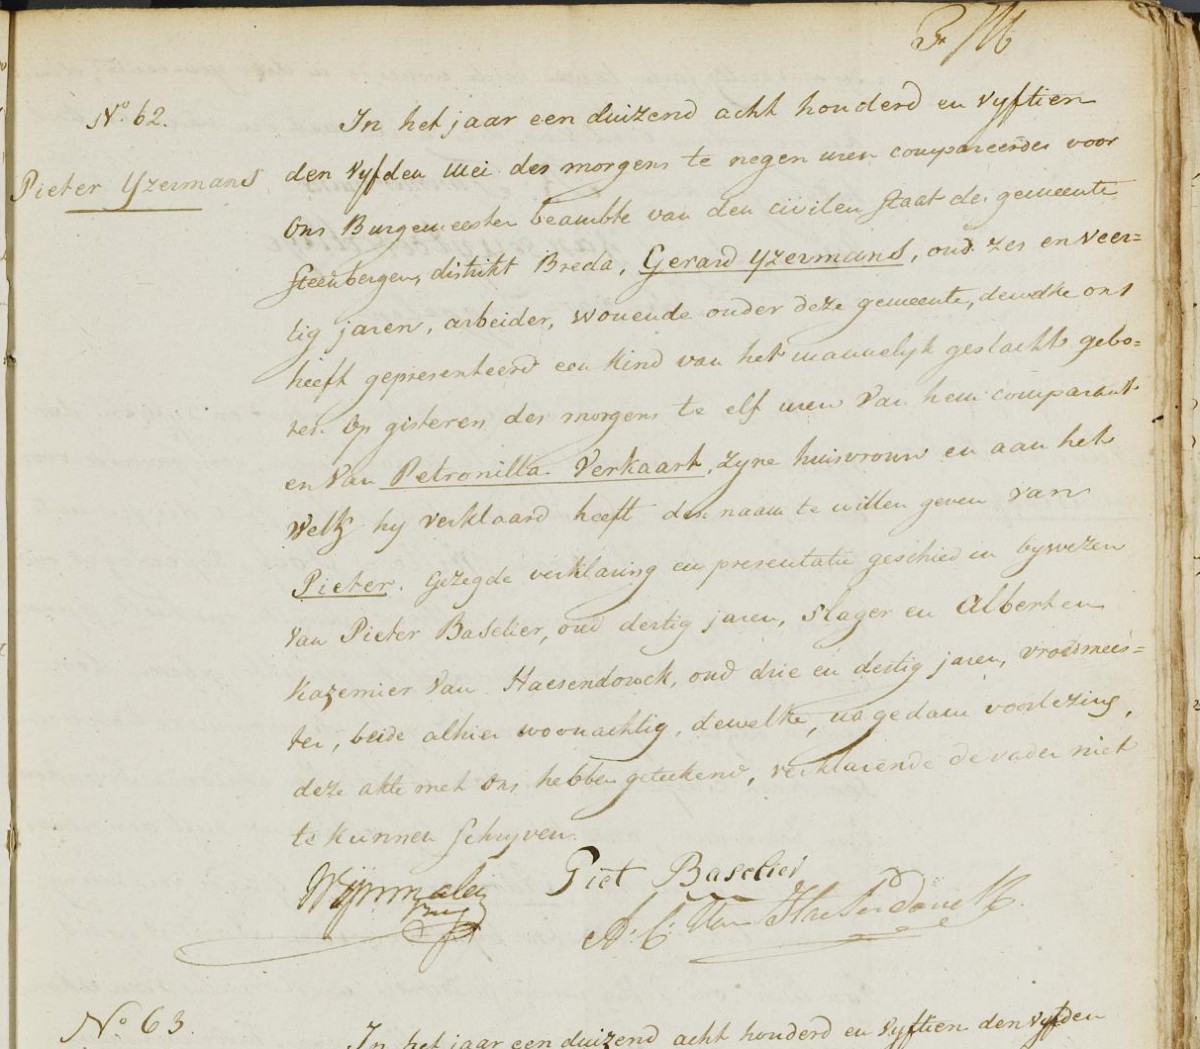 No. 62.
Pieter Yzermans
In het jaar een duizend acht honderd en vyftien
den vyfden Mei des morgens te negen uren compareerde voor
Ons Burgemeester beambte van den civilen staat der gemeente
Steenbergen, distrikt Breda, Gerard Yzermans, oud zes en veer=
tig jaren, arbeider, wonende onder deze gemeente, dewelke ons
heeft gepresenteerd een kind van het mannelyk geslacht gebo=
ren op gisteren des morgens te elf uren van hem comparant
en van Petronilla Verkaart, zyne huisvrouw en aan het
welk hy verklaard heeft den naam te willen geven van
Pieter. Gezegde verklaring en presentatie geschied in bywezen
van Pieter Baselier, oud dertig jaren, slager en Albert en
Kazemier van Haesendonck, oud drie en dertig jaren, vroedmees=
ter, beide alhier woonachtig, dewelke, na gedane voorlezing,
deze akte met ons hebben geteekend, verklarende de vader niet
te kunnen schryven.
Wijnmalen
Burg
Piet Baselier
A: C: Van Haesendonck.
No. 63.
In het jaar een duizend acht honderd en vyftien den vyfden